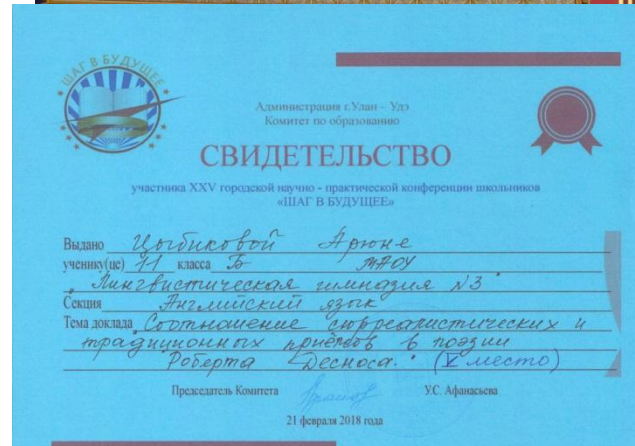 ШАГ В БУДУЩЕЕ
Администрация г.Улан – Удэ
Комитет по образованию
СВИДЕТЕЛЬСТВО
участника XXV городской научно - практической конференции школьников
«ШАГ В БУДУЩЕЕ»
Выдано Цыбиковой Арюне
ученику(це) 11 класса Б МАОУ
"Лингвистическая гимназия №3"
Секция Английский язык
Тема доклада Соотношение сюрреалистических и
традиционных приёмов в поэзии
Роберта Десноса. (V место)
Председатель Комитета У.С. Афанасьева
21 февраля 2018 года